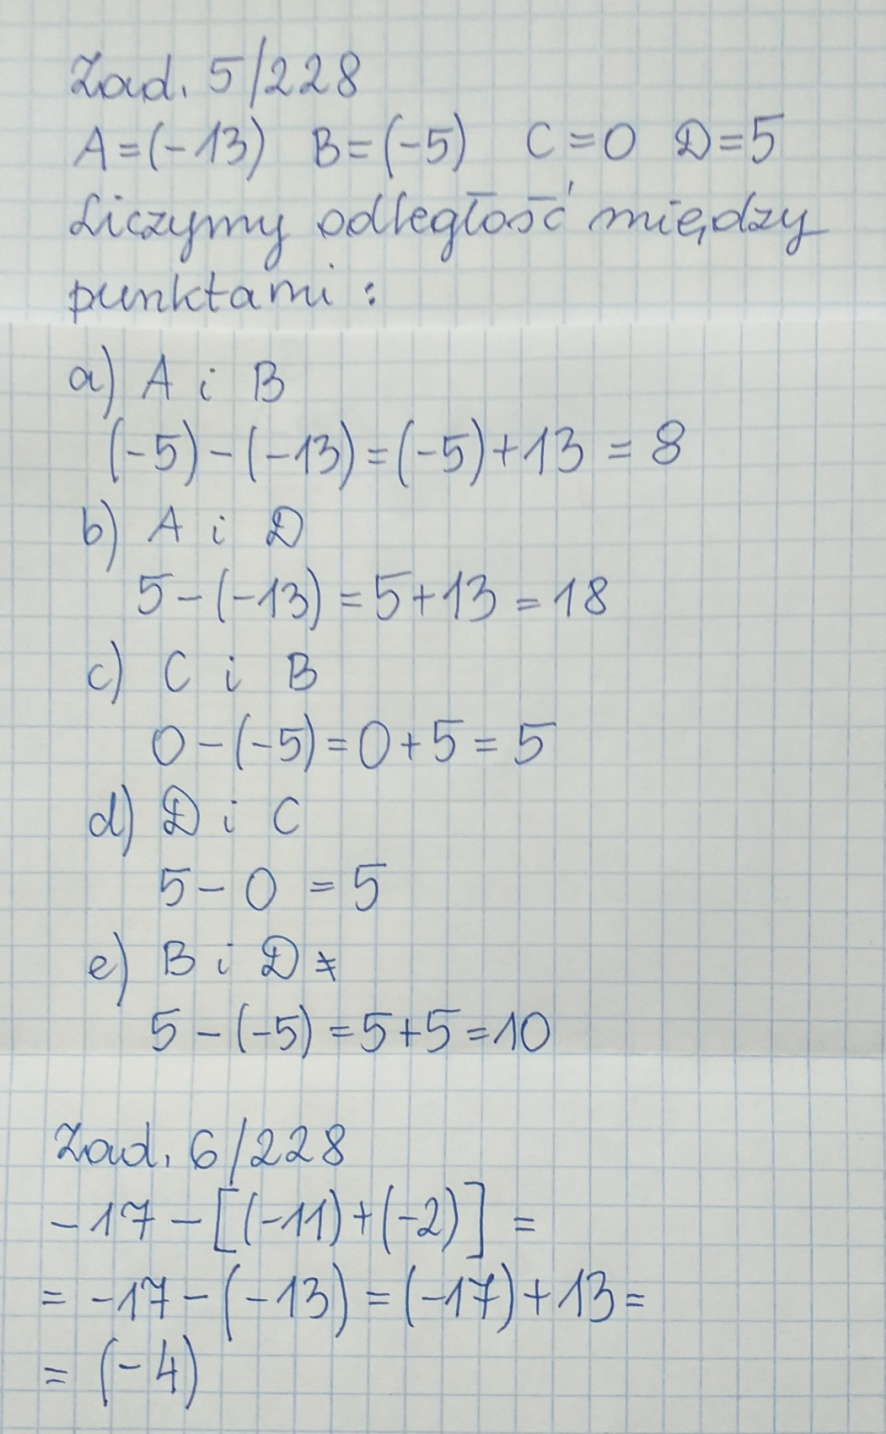 Zad. 5/228
A=(-13) B=(-5) C=0 D=5
Liczymy odległość między
punktami:
a) A i B
(-5)-(-13)=(-5)+13=8
b) A i D
5-(-13)=5+13=18
c) C i B
0-(-5)=0+5=5
d) D i C
5-0=5
e) B i D
5-(-5)=5+5=10
Zad. 6/228
-17-[(-11)+(-2)]=
= -17-(-13)=(-17)+13=
= (-4)